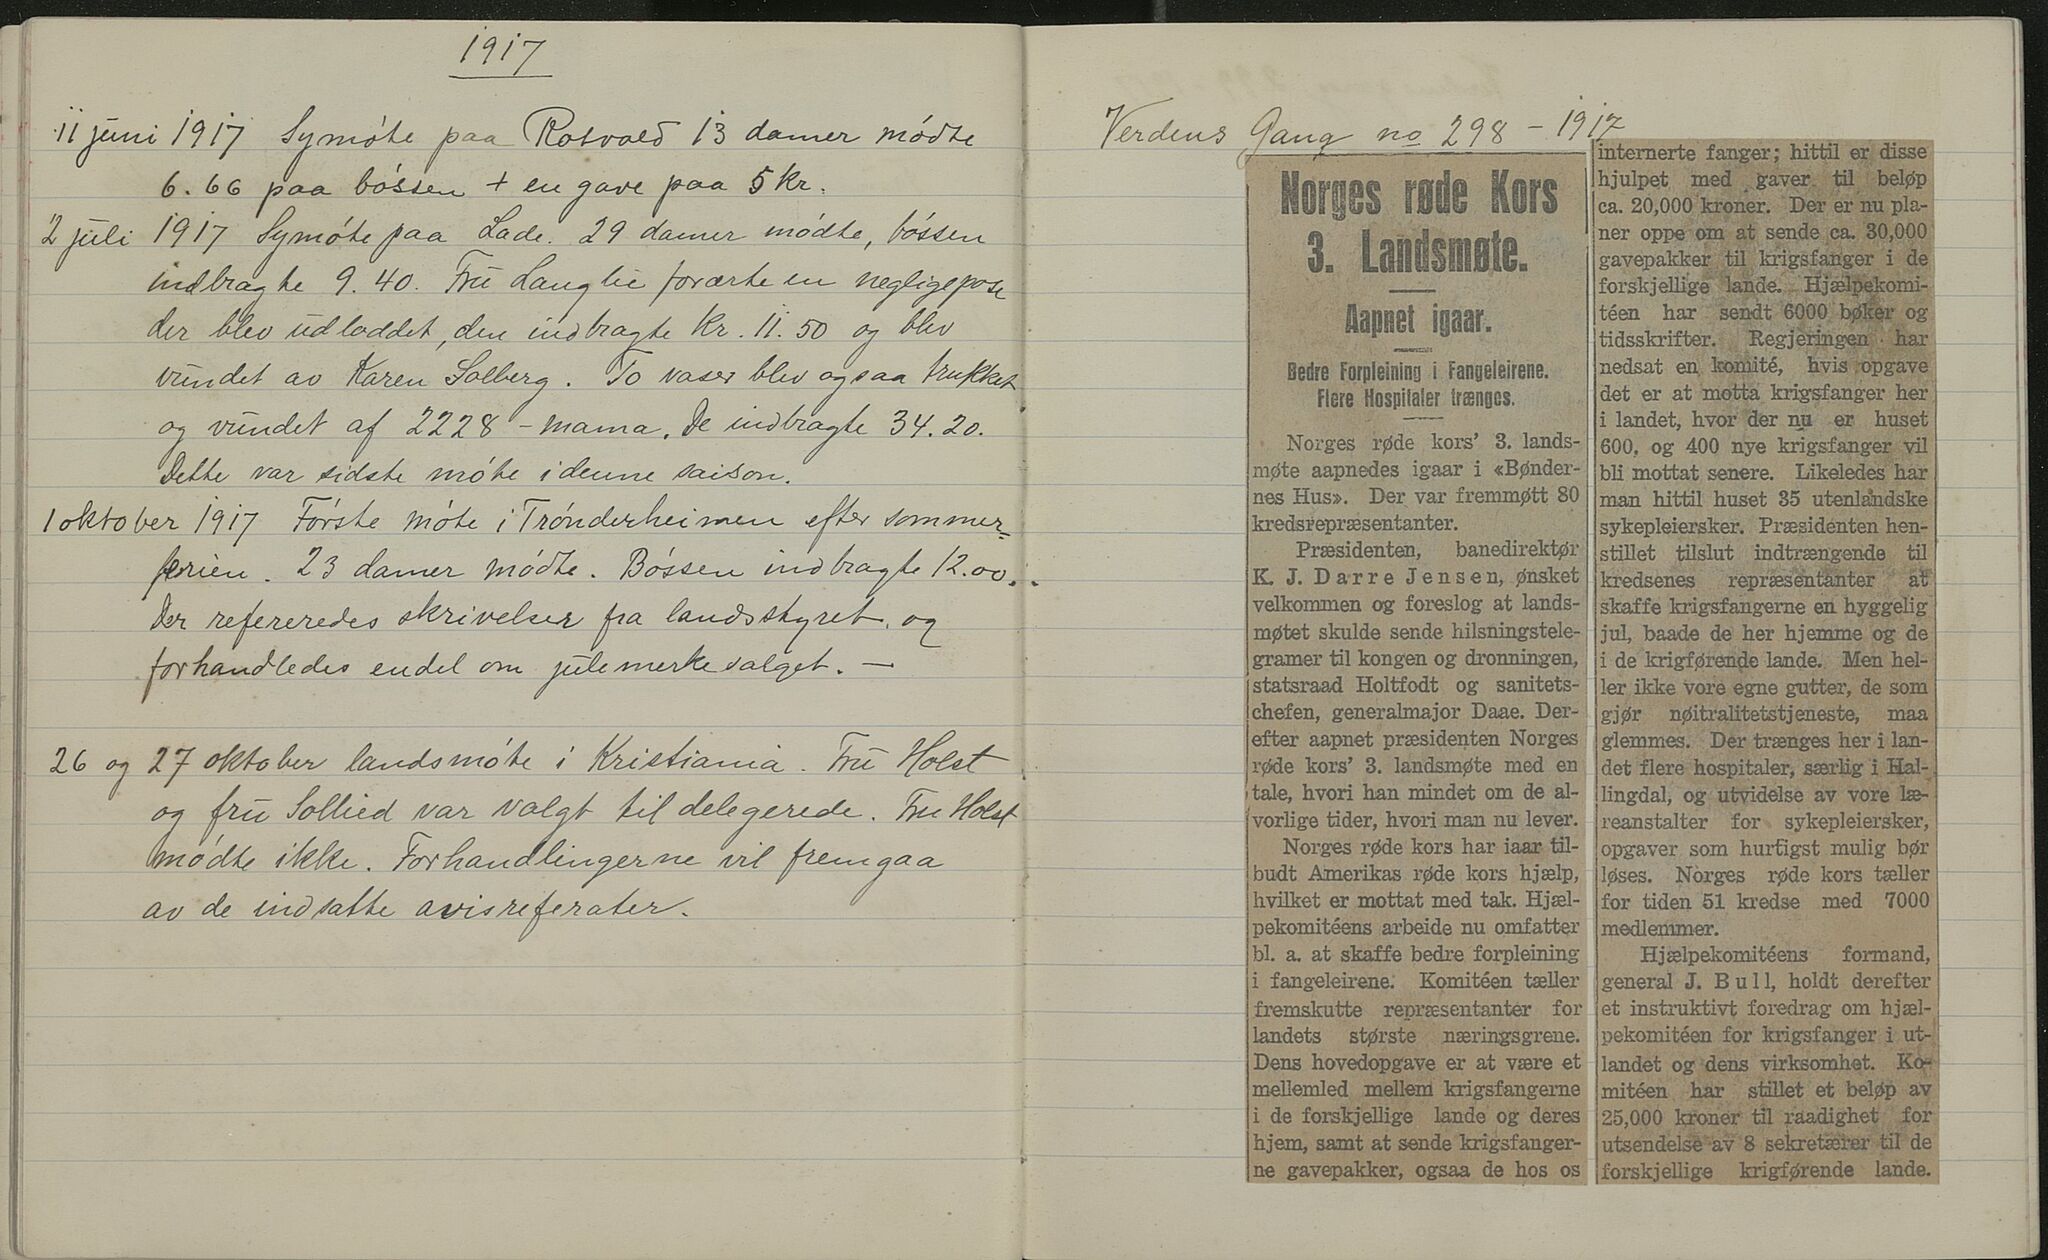 1917
11 juni 1917 Symøte paa Rotvold 13 damer mødte
6.66 paa bøssen + en gave paa 5 kr.
2 juli 1917 Symøte paa Lade. 29 damer mødte, bøssen
indbragte 9.40. Fru Langlie forærte en negligepose
der blev udloddet, den indbragte Kr. 11.50 og blev
vundet av Karen Solberg. To vaser blev ogsaa trukket
og vundet af 2228 - mama. De indbragte 34.20.
Dette var sidste møte i denne saison.
1 oktober 1917 Første møte i Trønderheimen efter sommer=
ferien. 23 damer mødte. Bøssen indbragte 12.00.
Der refereredes skrivelser fra landsstyret, og
forhandledes endel om julemerkesalget. —
26 og 27 oktober landsmøte i Kristiania. Fru Holst
og fru Sollied var valgt til delegerede. Fru Holst
mødte ikke. Forhandlingerne vil fremgaa
av de indsatte avisreferater.
Verdens Gang no 298 - 1917
Norges røde Kors
3. Landsmøte.
Aapnet igaar.
Bedre Forpleining i Fangeleirene.
Flere Hospitaler trænges.
Norges røde kors' 3. lands-
møte aapnedes igaar i «Bønder-
nes Hus». Der var fremmøtt 80
kredsrepræsentanter.
Præsidenten, banedirektør
K. J. Darre Jensen, ønsket
velkommen og foreslog at lands-
møtet skulde sende hilsningstele-
gramer til kongen og dronningen,
statsraad Holtfodt og sanitets-
chefen, generalmajor Daae. Der-
efter aapnet præsidenten Norges
røde kors' 3. landsmøte med en
tale, hvori han mindet om de al-
vorlige tider, hvori man nu lever.
Norges røde kors har iaar til-
budt Amerikas røde kors hjælp,
hvilket er mottat med tak. Hjæl-
pekomitéens arbeide nu omfatter
bl. a. at skaffe bedre forpleining
i fangeleirene. Komitéen tæller
fremskutte repræsentanter for
landets største næringsgrene.
Dens hovedopgave er at være et
mellemled mellem krigsfangerne
i de forskjellige lande og deres
hjem, samt at sende krigsfanger-
ne gavepakker, ogsaa de hos os
internerte fanger; hittil er disse
hjulpet med gaver til beløp
ca. 20,000 kroner. Der er nu pla-
ner oppe om at sende ca. 30,000
gavepakker til krigsfanger i de
forskjellige lande. Hjælpekomi-
téen har sendt 6000 bøker og
tidsskrifter. Regjeringen har
nedsat en komité, hvis opgave
det er at motta krigsfanger her
i landet, hvor der nu er huset
600, og 400 nye krigsfanger vil
bli mottat senere. Likeledes har
man hittil huset 35 utenlandske
sykepleiersker. Præsidenten hen-
stillet tilslut indtrængende til
kredsenes repræsentanter at
skaffe krigsfangerne en hyggelig
jul, baade de her hjemme og de
i de krigførende lande. Men hel-
ler ikke vore egne gutter, de som
gjør nøitralitetstjeneste, maa
glemmes. Der trænges her i lan-
det flere hospitaler, særlig i Hal-
lingdal, og utvidelse av vore læ-
reanstalter for sykepleiersker,
opgaver som hurtigst mulig bør
løses. Norges røde kors tæller
for tiden 51 kredse med 7000
medlemmer.
Hjælpekomitéens formand,
general J. Bull, holdt derefter
et instruktivt foredrag om hjæl-
pekomitéen for krigsfanger i ut-
landet og dens virksomhet. Ko-
mitéen har stillet et beløp av
25,000 kroner til raadighet for
utsendelse av 8 sekretærer til de
forskjellige krigførende lande.